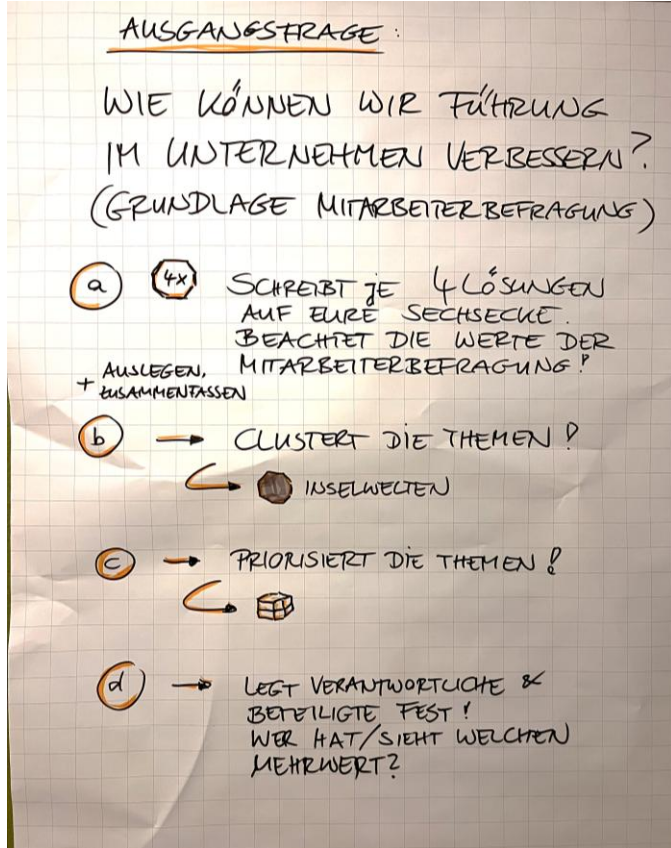 AUSGANGSFRAGE:
WIE KÖNNEN WIR FÜHRUNG
IM UNTERNEHMEN VERBESSERN?
(GRUNDLAGE MITARBEITERBEFRAGUNG)
a 4x SCHREIBT JE 4 LÖSUNGEN
AUF EURE SECHSECKE.
BEACHTET DIE WERTE DER
MITARBEITERBEFRAGUNG!
+ AUSLEGEN,
ZUSAMMENFASSEN
b → CLUSTERT DIE THEMEN!
INSELWELTEN
c → PRIORISIERT DIE THEMEN!
d → LEGT VERANTWORTLICHE &
BETEILIGTE FEST!
WER HAT/SIEHT WELCHEN
MEHRWERT?